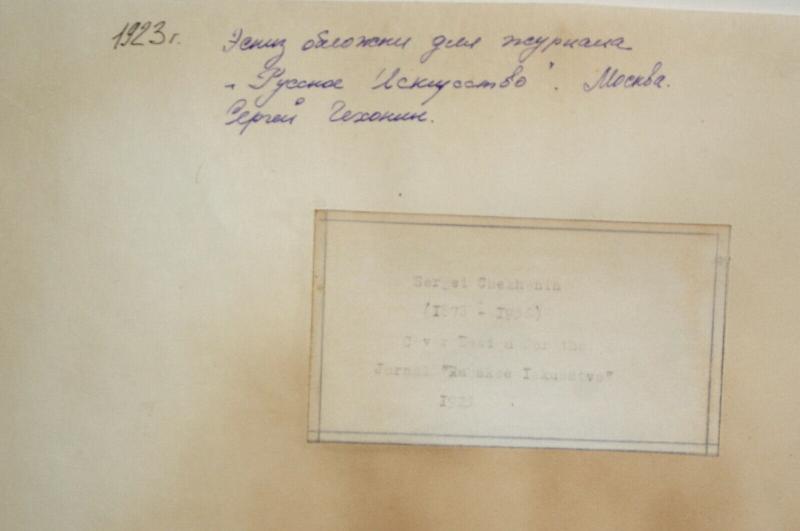 1923 г. Эскиз обложки для журнала
"Русское Искусство". Москва.
Сергей Чехонин.
Sergei Chekhonin
(1878 - 1936)
Cover Design for the
Jurnal "Russkoe Iskusstvo"
1923